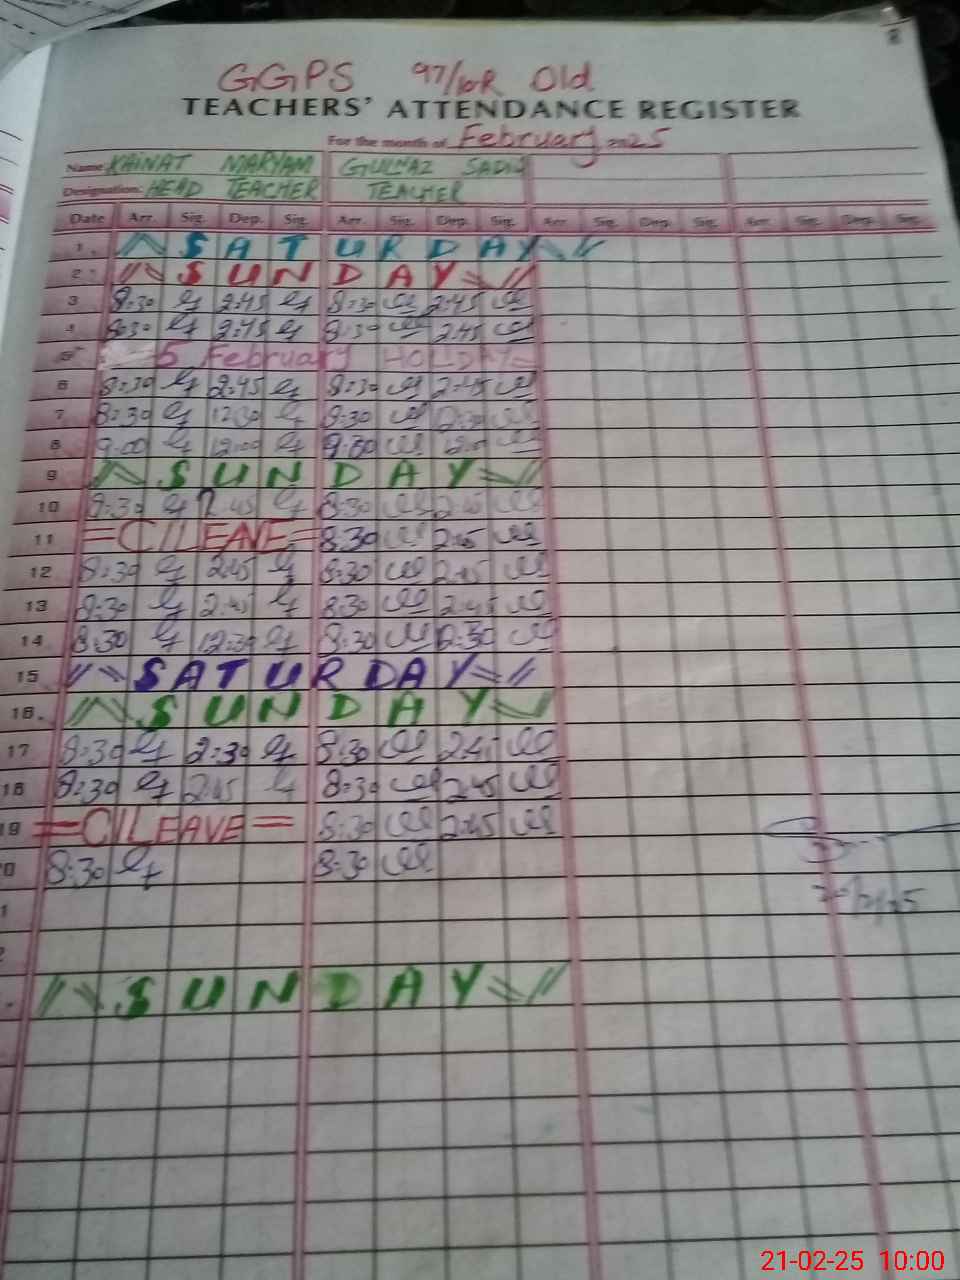 GGPS 97/10R Old
TEACHERS' ATTENDANCE REGISTER
For the month of February 2025
Name: KAINAT MARYAM GULNAZ SADIQ
Designation: HEAD TEACHER TEACHER
Date Arr. Sig. Dep. Sig. Arr. Sig. Dep. Sig. Arr. Sig. Dep. Sig. Arr. Sig. Dep. Sig.
1. SATURDAY
2. SUNDAY
3 8:30 2:45 8:30 2:45
4 8:30 2:45 8:30 2:45
5 February HOLIDAY
6 8:30 2:45 8:30 2:45
7 8:30 12:30 8:30 12:30
8 9:00 12:00 12:00
9 SUNDAY
10 8:30 2:45 8:30 2:45
11 C/LEAVE 8:30 2:45
12 8:30 2:45 8:30 2:45
13 8:30 2:45 8:30 2:45
14 8:30 12:30 8:30 12:30
15 SATURDAY
16. SUNDAY
17 8:30 2:30 8:30 2:45
18 8:30 2:45 8:30 2:45
19 C/LEAVE 8:30 2:45
0 8:30 8:30
1
2
SUNDAY
21-02-25 10:00